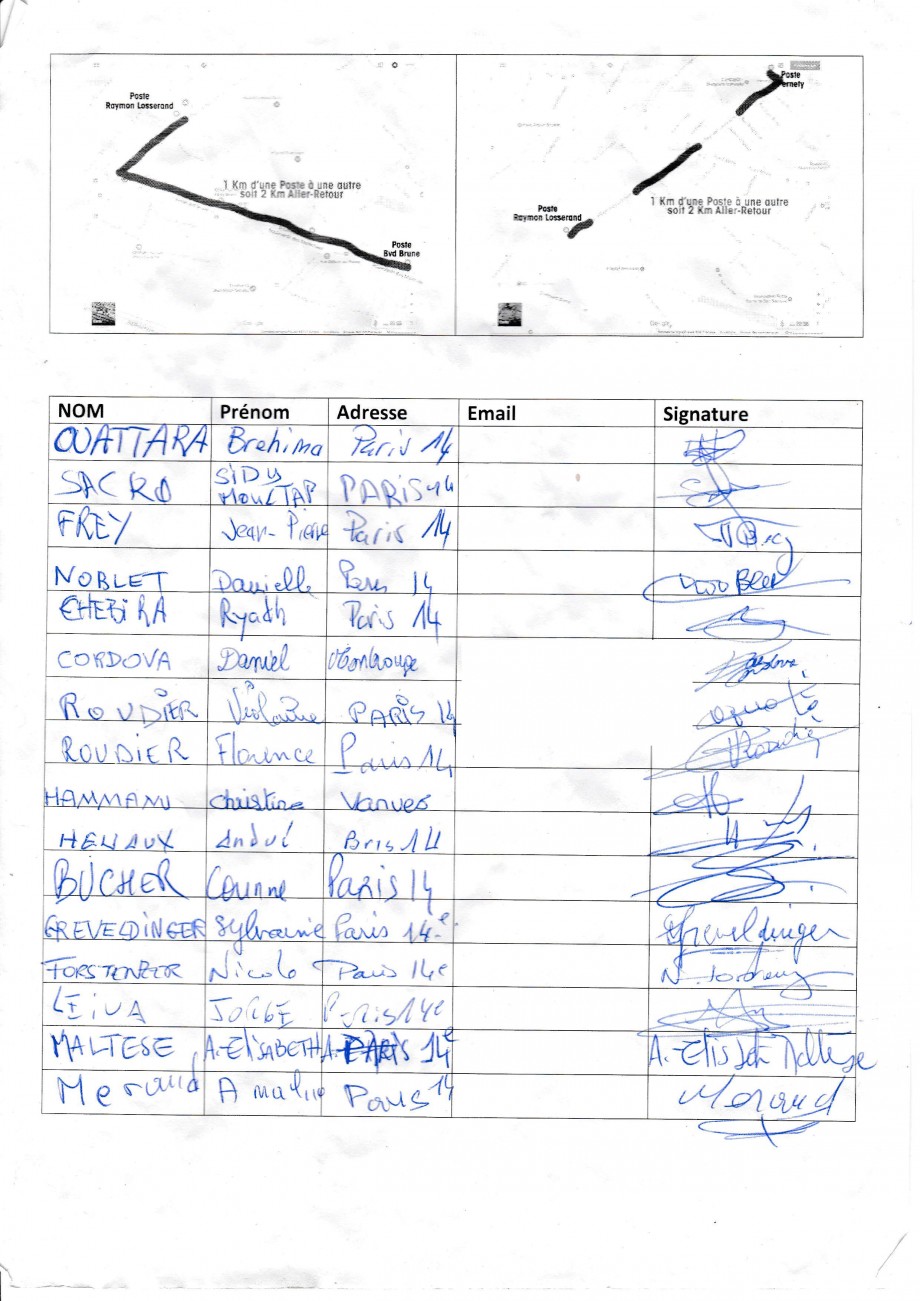 Poste
Raymon Losserand
1 Km d'une Poste à une autre
soit 2 Km Aller-Retour
Poste
Bvd Brune
Poste
Pernety
1 Km d'une Poste à une autre
soit 2 Km Aller-Retour
Poste
Raymon Losserand
NOM Prénom Adresse Email Signature
OUATTARA Brehima Paris 14
SACKO SIDY MOUCTAR PARIS 14
FREY Jean-Pierre Paris 14
NOBLET Danielle Paris 14
CHEBIRA Ryadh Paris 14
CORDOVA Daniel Montrouge
ROUDIER Violaine PARIS 14
ROUDIER Florence Paris 14
HAMMANI christine Vanves
HENAUX André Paris 14
BUCHER Corinne PARIS 14
GREVELDINGER Sylvaine Paris 14e Greveldinger
Nicole Paris 14e
LEIVA JORGE Paris 14e
MALTESE A-ELISABETH PARIS 14e A-Elisabeth Maltese
Meraud Paris 14 Meraud